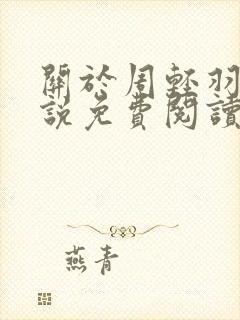 關於周輕羽
説免費閱讀
燕青